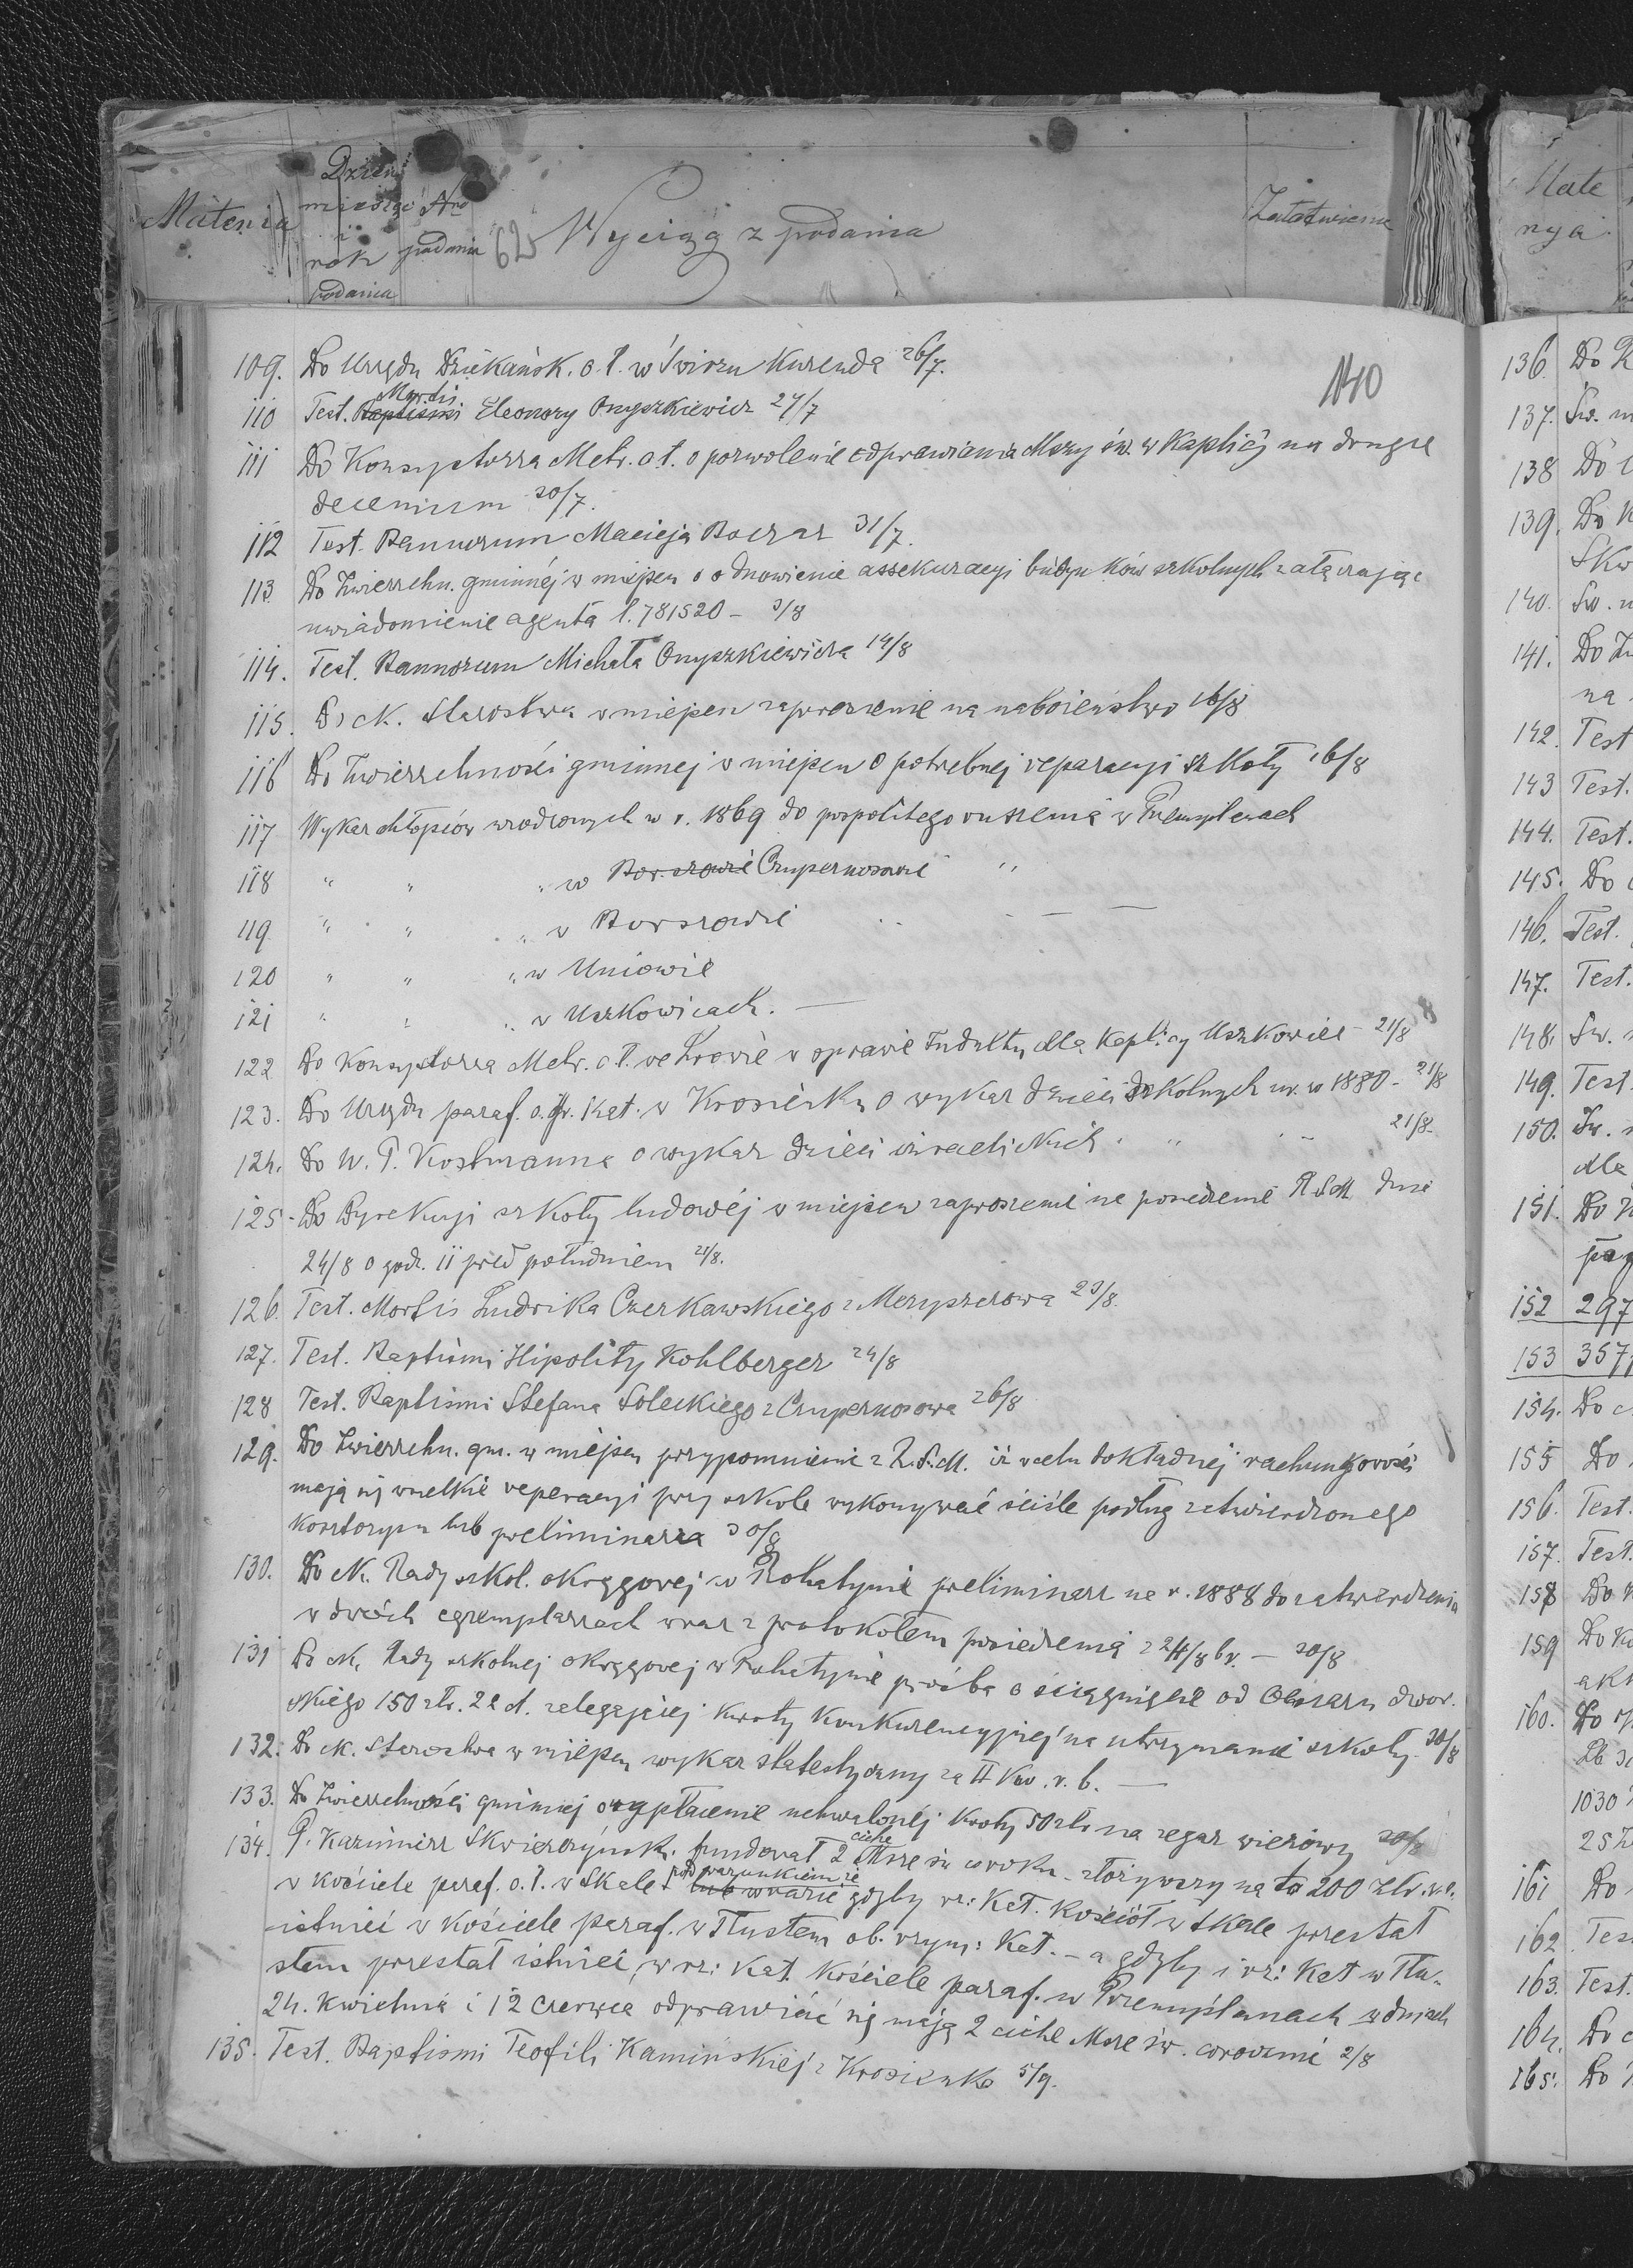 Materia
Dzień
miesiąc
i
rok
podania
Nro
podania
62
Wyciąg z podania
Załatwienie
140
109. Do Urzędu Dziekańsk. o. ł. w Świrzu Kurenda 26/7.
110 Test. Baptismi Mortis Eleonory Onyszkiewicz 27/7
111 Do Konsystorza Metr. o ł. o pozwolenie odprawiania Mszy św. w Kaplicy na drugie
decenium 30/7.
112 Test. Bannorum Macieja Boczar 31/7.
113 Do Zwierzchn. gminnéj w miejscu o odnowienie assekuracyi budynków szkolnych załączając
uwiadomienie agenta l. 781520 - 3/8
114. Test. Bannorum Michała Onyszkiewicza 14/8
115. Do ck. Starostwa w miejscu zaproszenie na nabożeństwo 16/8
116 Do Zwierzchności gminnej w miejscu o potrebnej reparacyi szkoły 16/8
117 Wykaz chłopców urodzonych w r. 1869 do pospolitego ruszenia w Przemyślanach
118 " " " w Borszowie Czupernosowie "
119 " " " w Borszowie
120 " " " w Uniowie
121 " " " w Uszkowicach. —
122 Do Konsystorza Metr. o ł. we Lwowie w sprawie Indultu dla Kaplicy Uszkowice - 21/8
123. Do Urzędu paraf. o. gr. kat. w Krosienku o wykaz dzieci szkolnych ur. w 1880 - 21/8
124. Do W. P. Kostmanna o wykaz dzieci izraelickich. " - 21/8
125. Do Dyrekcyi szkoły ludowéj w miejscu zaproszenie na posiedzenie RSM dnia
24/8 o godz. 11 pred południem 21/8.
126. Test. Mortis Ludwika Czerkawskiego z Meryszczowa 23/8.
127. Test. Baptismi Hipolity Kohlberger 24/8
128 Test. Baptismi Stefana Soleckiego z Czupernosowa 26/8
129. Do Zwierzchn. gm. w miejscu przypomnienie z R.S.M. iż celu dokładnej rachunkowości
mają się wszelkie reperacyi przy szkole wykonywać ściśle podług zatwierdzonego
kosztorysu lub preliminarza 30/8
130. Do ck. Rady szkol. okręgowej w Rohatynie preliminarz na r. 1888 do zatwierdzenia
w dwóch egzemplarzach wraz z protokołem posiedzenia z 24/8 b r. — 30/8
131 Do ck. Rady szkolnej okręgowej w Rohatynie prośba o ściągnięcie od Obszaru dwor.
skiego 150 złr. 22 ct. zalegającej kwoty konkurencyjnej na utrzymanie szkoły. 30/8
132. Do ck. Starostwa w miejscu wykaz statestyczny za II kw. r. b. —
133. Do Zwierzchności gminnej o wypłacenie uchwalonéj kwoty 50 złr na zegar wieżowy 30/8
134. P. Kazimierz Skwierczyńsk. fundował 2 ciche Msze św. co roku - złożywszy na to 200 złr. w. a.
w kościele paraf. o. ł. w Skale pod warunkiem że lub w razie gdyby rz: kat. kościół w Skale przestał
istnieć w kościele paraf. w Tłustem ob. rzym: kat. - a gdyby i rz: kat w Tłu-
stem przestał istnieć, w rz: kat. kościele paraf. w Przemyślanach w dniach
24. kwietnia i 12 czerwca odprawiać się mają 2 ciche Msze św. corocznie 2/8
135. Test. Baptismi Teofili Kamińskiéj z Krosienka 5/9.
Mate
rya
136. Do
137. Św.
138 Do
139. Do
Skw
140. Św.
141. Do
na
142. Test
143 Test.
144. Test.
145. Do
146. Test.
147. Test.
148. Św.
149. Test.
150. Św.
dla
151. Do
152 297
153 357
154. Do
155 Do
156. Test.
157. Test.
158 Do
159 Do
160. Do
1030
25
161 Do
162 Tes
163. Test.
164. Do
165. Do